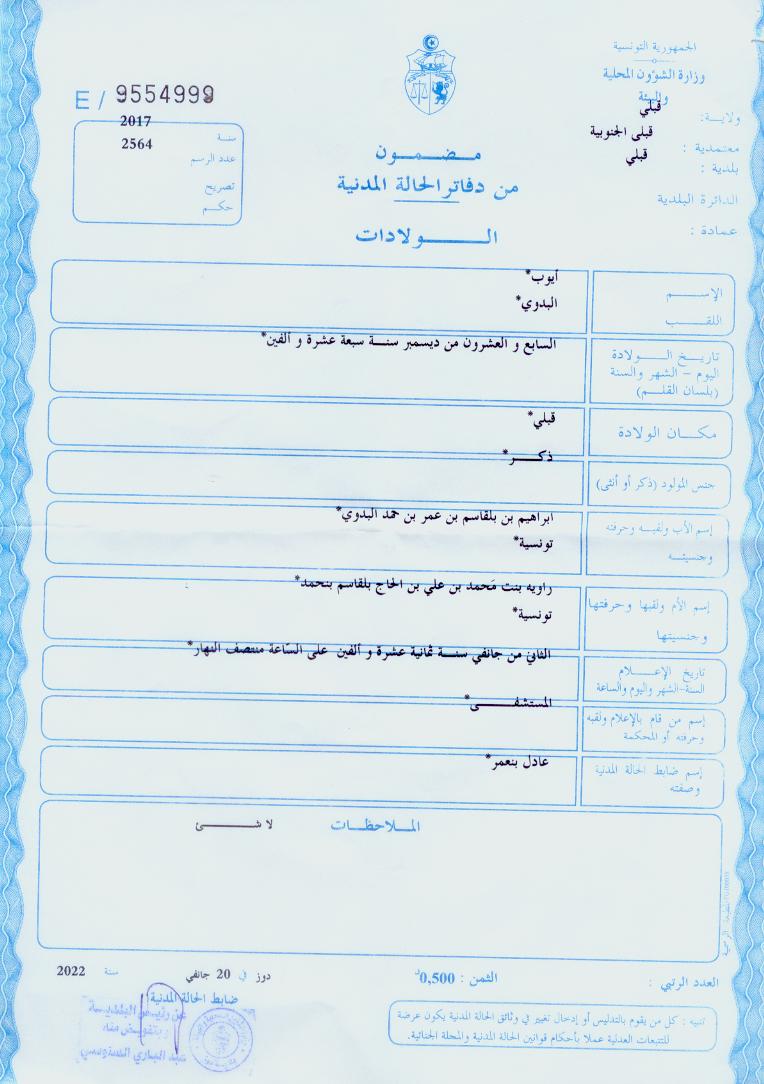 الجمهورية التونسية
وزارة الشؤون المحلية
والبيئة
ولاية: قبلي
معتمدية : قبلى الجنوبية
بلدية : قبلي
الدائرة البلدية
عمادة :
E / 9554999
سنة 2017
عدد الرسم 2564
تصريح
حكم
مضمون
من دفاتر الحالة المدنية
الولادات
الإسم أيوب*
اللقب البدوي*
تاريخ الولادة
اليوم - الشهر والسنة
(بلسان القلم)
السابع و العشرون من ديسمبر سنة سبعة عشرة و ألفين*
مكان الولادة قبلي*
جنس المولود (ذكر أو أنثى) ذكر*
إسم الأب ولقبه وحرفته
وجنسيته
ابراهيم بن بلقاسم بن عمر بن حمد البدوي*
تونسية*
إسم الأم ولقبها وحرفتها
وجنسيتها
راويه بنت مَحمد بن علي بن الحاج بلقاسم بنحمد*
تونسية*
تاريخ الإعلام
السنة-الشهر واليوم والساعة
الثاني من جانفي سنة ثمانية عشرة و ألفين على السّاعة منتصف النهار*
إسم من قام بالإعلام ولقبه
وحرفته أو المحكمة
المستشفى*
إسم ضابط الحالة المدنية
وصفته
عادل بنعمر*
الملاحظات لا شئ
العدد الرتبي :
الثمن : 0,500د
دوز في 20 جانفي سنة 2022
ضابط الحالة المدنية
عن رئيس البلدية
وبتفويض منه
عبد الباري السنوسي
تنبيه : كل من يقوم بالتدليس أو إدخال تغيير في وثائق الحالة المدنية يكون عرضة
للتتبعات العدلية عملا بأحكام قوانين الحالة المدنية والمجلة الجنائية.